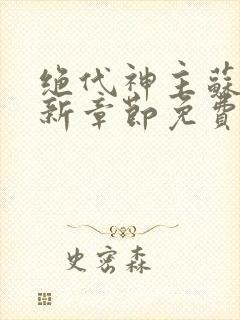 绝代神主蘇
新章節免費
史密森